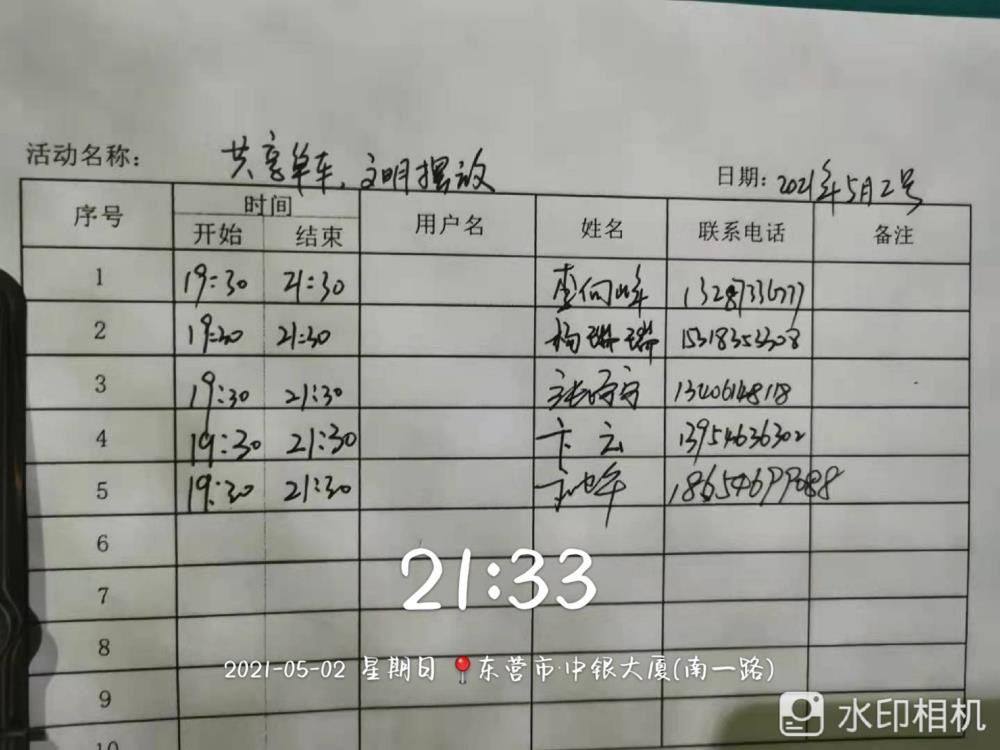 活动名称： 共享单车，文明摆放 日期：2021年5月2号
序号 时间 用户名 姓名 联系电话 备注
开始 结束
1 19:30 21:30
2 19:30 21:30 杨瑞瑞 15318353308
3 19:30 21:30 13406148118
4 19:30 21:30 卞云 13954636302
5 19:30 21:30 18654699688
6
7
8
9
10
21:33
2021-05-02 星期日 东营市·中银大厦(南一路)
水印相机